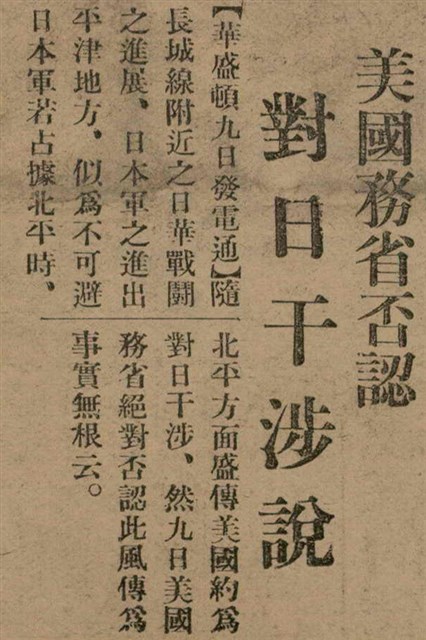 美國務省否認
對日干涉說
【華盛頓九日發電通】隨
長城線附近之日華戰鬪
之進展、日本軍之進出
平津地方、似為不可避
日本軍若占據北平時、
北平方面盛傳美國約為
對日干涉、然九日美國
務省絕對否認此風傳為
事實無根云。